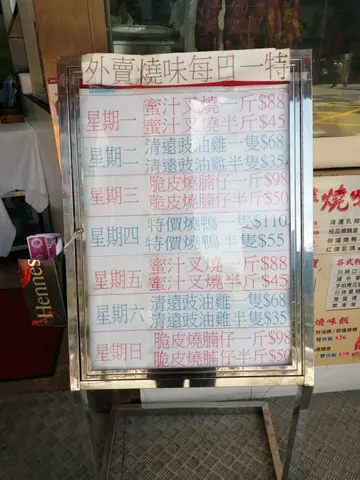 外賣燒味每日一特
星期一
蜜汁叉燒一斤$88
蜜汁叉燒半斤$45
星期二
清遠豉油雞一隻$68
清遠豉油雞半隻$35
星期三
脆皮燒腩仔一斤$98
脆皮燒腩仔半斤$50
星期四
特價燒鴨一隻$110
特價燒鴨半隻$55
星期五
蜜汁叉燒一斤$88
蜜汁叉燒半斤$45
星期六
清遠豉油雞一隻$68
清遠豉油雞半隻$35
星期日
脆皮燒腩仔一斤$98
脆皮燒腩仔半斤$50
Hennes
燒味
燒味飯